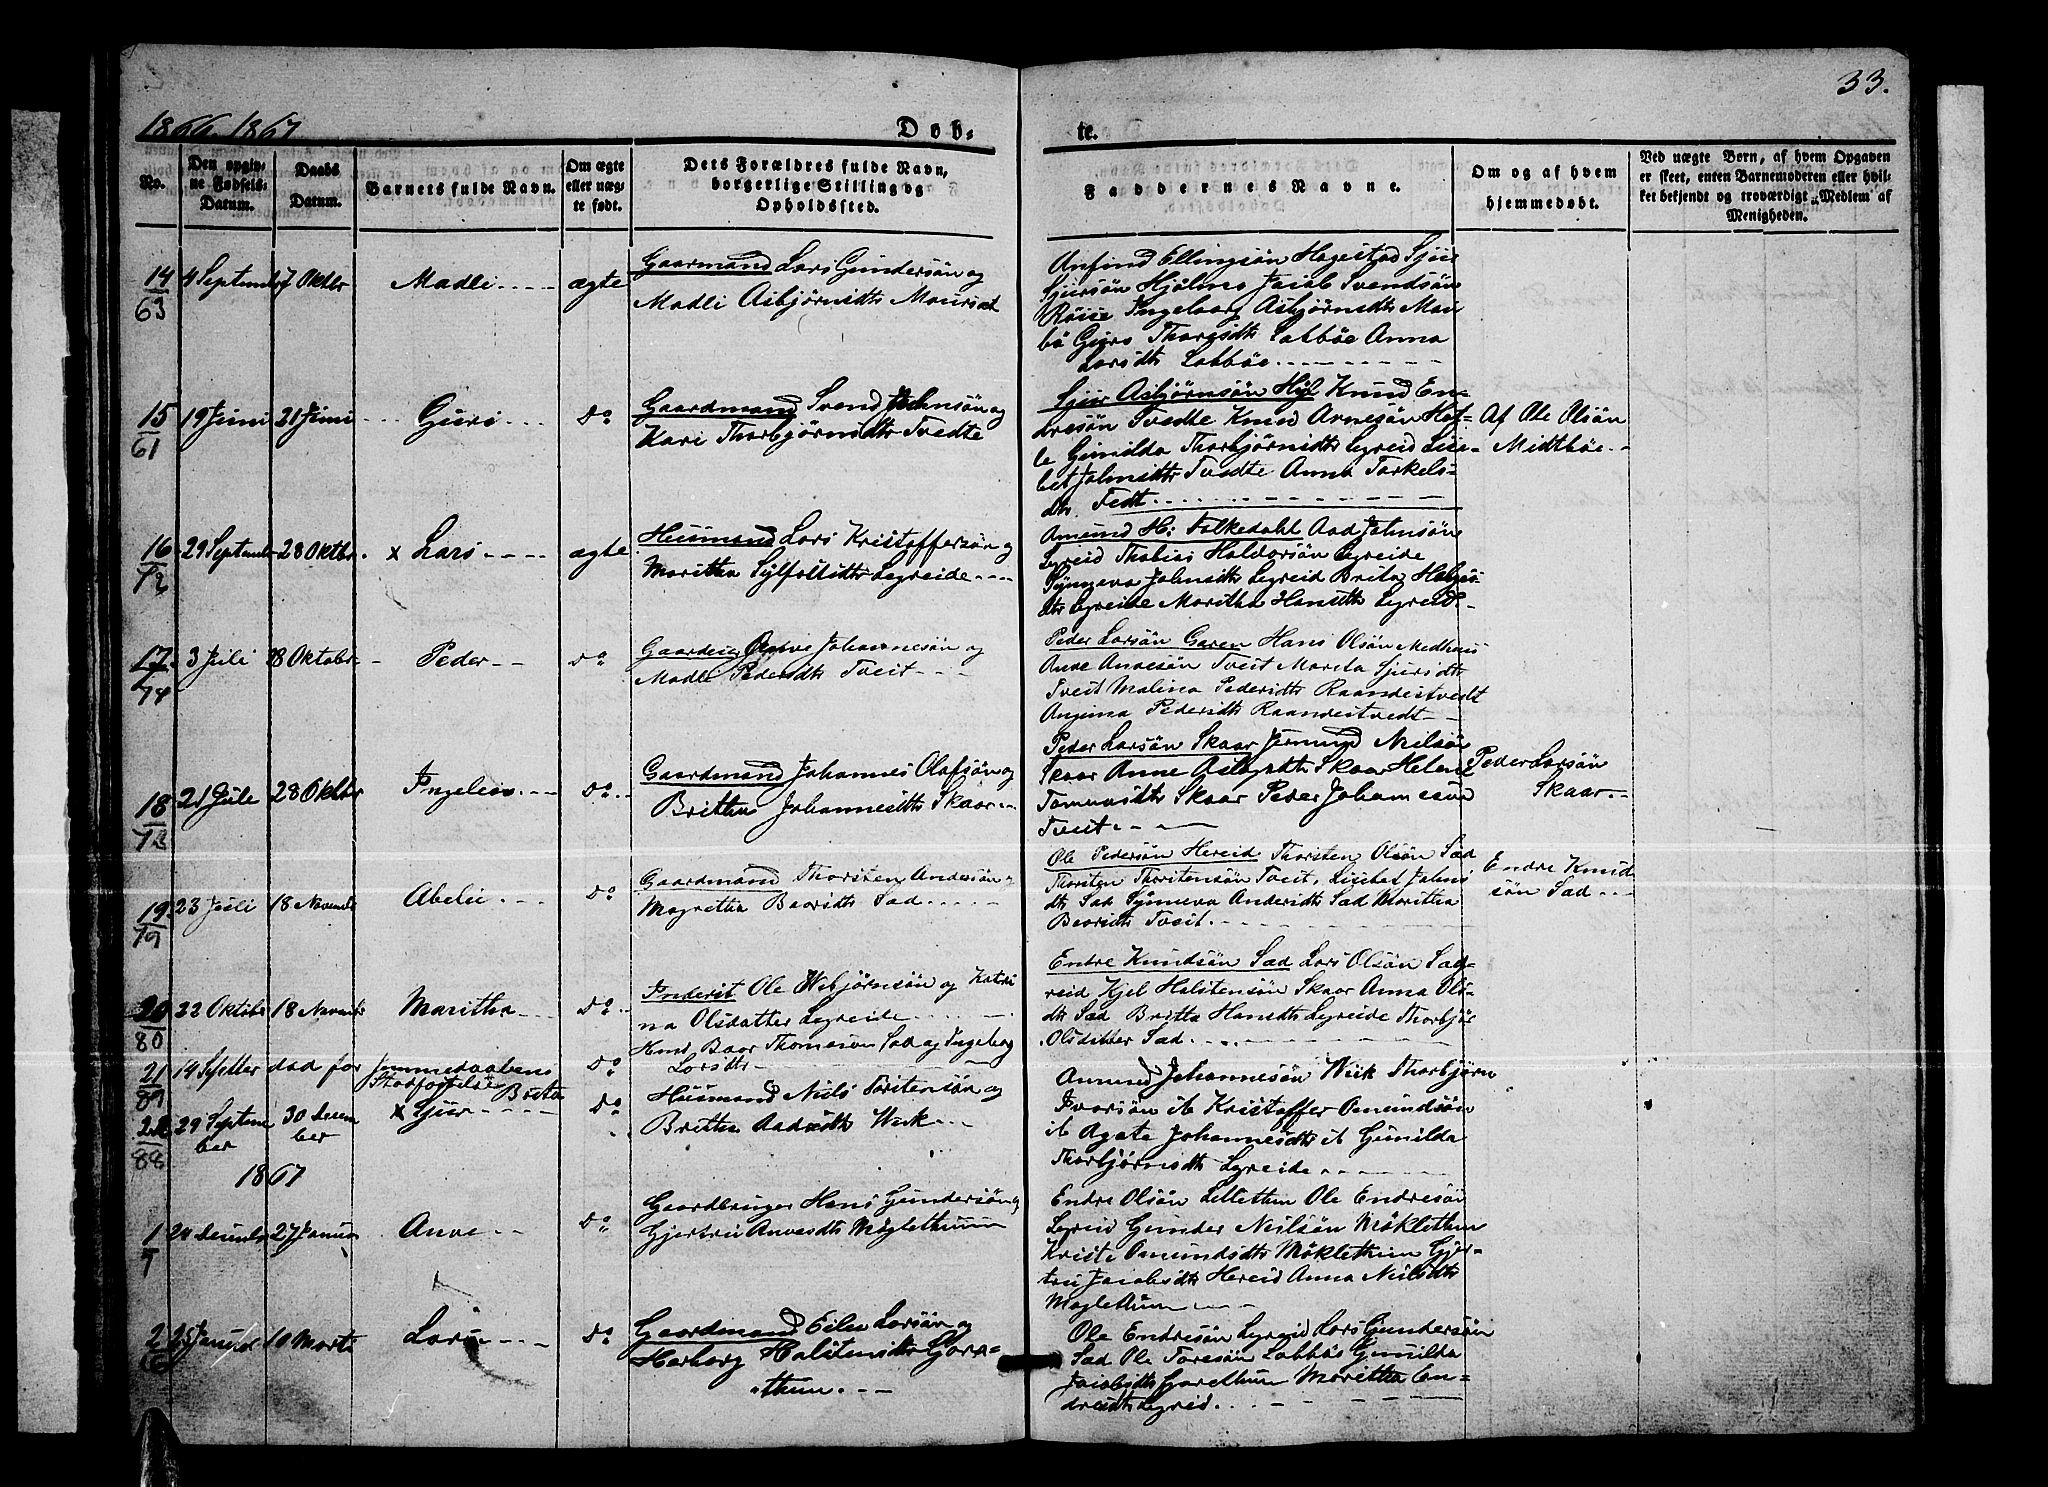 33.
1866, 1867
Døb-
te.
No.
Den opgiv-
ne Fødsels-
Datum.
Daabs
Datum.
Barnets fulde Navn.
Om ægte
eller uæg-
te født.
Dets Forældres fulde Navn,
borgerlige Stilling og
Opholdssted.
Faddernes Navne.
Om og af hvem
hjemmedøbt.
Ved uægte Børn, af hvem Opgaven
er skeet, enten Barnemoderen eller hvil-
ket bekjendt og troværdigt Medlem af
Menigheden.
14
63
4 September 7 Oktbr Madli ægte
Gaarmand Lars Gundersøn og
Madli Asbjørnsdtr Maursæt
Anfind Ellingsøn Hagestad Sjur
Sjursøn Hjølmo Jacob Svendsøn
Røise Ingeborg Asbjørnsdtr Mau
bø Guro Thoresdtr Løbbøe Anna
Larsdtr Løbbøe
15
61
19 Juni 21 Juni Guri do
Gaardmand Svend Johnsøn og
Kari Thorbjørnsdtr Tvedte
Sjur Asbjørnsøn Hyl Knud En-
dresøn Tvedte Knud Arnesøn Hof-
le Gunilda Thorbjørnsdtr Lægreid Lisa-
bet Johnsdtr Tvedte Anna Torkels-
dtr Fedt
Af Ole Olsøn
Midtbøe
16
72
29 Septemb 28 Oktbr x Lars ægte
Huusmand Lars Kristoffersøn og
Maritha Sylfestsdtr Legreide
Amund H: Falkedahl Aad Johnsøn
Lgreid Thobias Haldorsøn Legreide
Synneva Johnsdtr Legreid Brita Helges-
dtr Legreide Maritha Hansdtr Legreid
17
74
3 Juli 28 Oktobr Peder do
Gaardeig Anve Johannesøn og
Madle Pedersdtr Tveit
Peder Larsøn Garen Hans Olsøn Medhuus
Anve Anvesøn Tveit Marita Sjursdtr
Tveit Malina Pedersdtr Raandestvedt
Angima Pedersdtr Raandestvedt
18
73
21 Jule 28 Oktbr Ingeleiv do
Gaardmand Johannes Olafsøn og
Brittha Johannesdtr Skaar
Peder Larsøn Skaar Jermund Nilsøn
Skaar Anne Skaar Helene
Skaar Peder Johannesøn
Tveit
Peder Larsøn
Skaar
19
79
23 Juli 18 Novemb Abelie do
Gaardmand Thorsten Andersøn og
Magretha Baarsdtr Sæd
Ole Pedersøn Hereid Thorsten Olsøn Sæd
Thorsten Thorstensøn Tveit, Lisebet Johns
dtr Sæd Synneva Andersdtr Sæd Maritha
Baarsdtr Tveit
Endre Knud
søn Sæd
20
80
22 Oktobr 18 Novemb Maritha do
Inderst Ole Wibjørnsøn og Katri
na Olsdatter Lægreide
Endre Knudsøn Sæd Lars Olsøn Læg-
reid Kjel Halstensøn Skaar Anna Ols-
dtr Sæd Britta Hansdtr Lægreide Thorbjør
Olsdatter Sæd
21
89
14 Septber død før Jemmedaabens
Stadfæstelse Brita do
Hmd Baar Thomasøn Sæd og Ingeborg
Larsdtr
22
88
29 Septem
ber
30 Decem
ber
x Sjur do
Huusmand Nils Torstensøn og
Brittha Aadsdtr Wiik
Amund Johannesøn Wiik Thorbjørn
Ivarsøn ib Kristoffer Omundsøn
ib Agate Johannesdtr ib Gunilda
Thorbjørnsdtr Lgreide
1867
1
7
24 Decemb 27 Januar Anve do
Gaardbruger Hans Gundersøn og
Gjertrui Anvesdtr Møglethuun
Endre Olsøn Lillethun Ole Endresøn
Legreid Gunder Nilsøn Møklethun
Kristi Omundsdtr Møklethun Gjer-
trui Jacobsdtr Hereid Anna Nilsdtr
Møglethun
2
25 Januar 10 Marts Lars do
Gaardmand Eilev Larsøn og
Herborg Halstensdtr Gora-
thun
Ole Endresøn Lgreid Lars Gundersøn
Sæd Ole Toresøn Løbbøe Gunilda
Jacobsdtr Garethun Maritha En-
dresdtr Lgreid